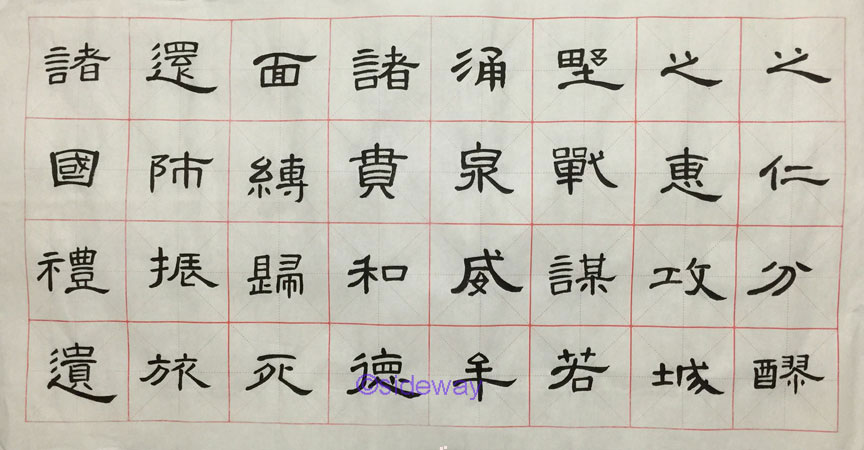 之仁分醪
之惠攻城
野戰謀若
涌泉威牟
諸賁和德
面縛歸死
還師振旅
諸國禮遺
©sideway